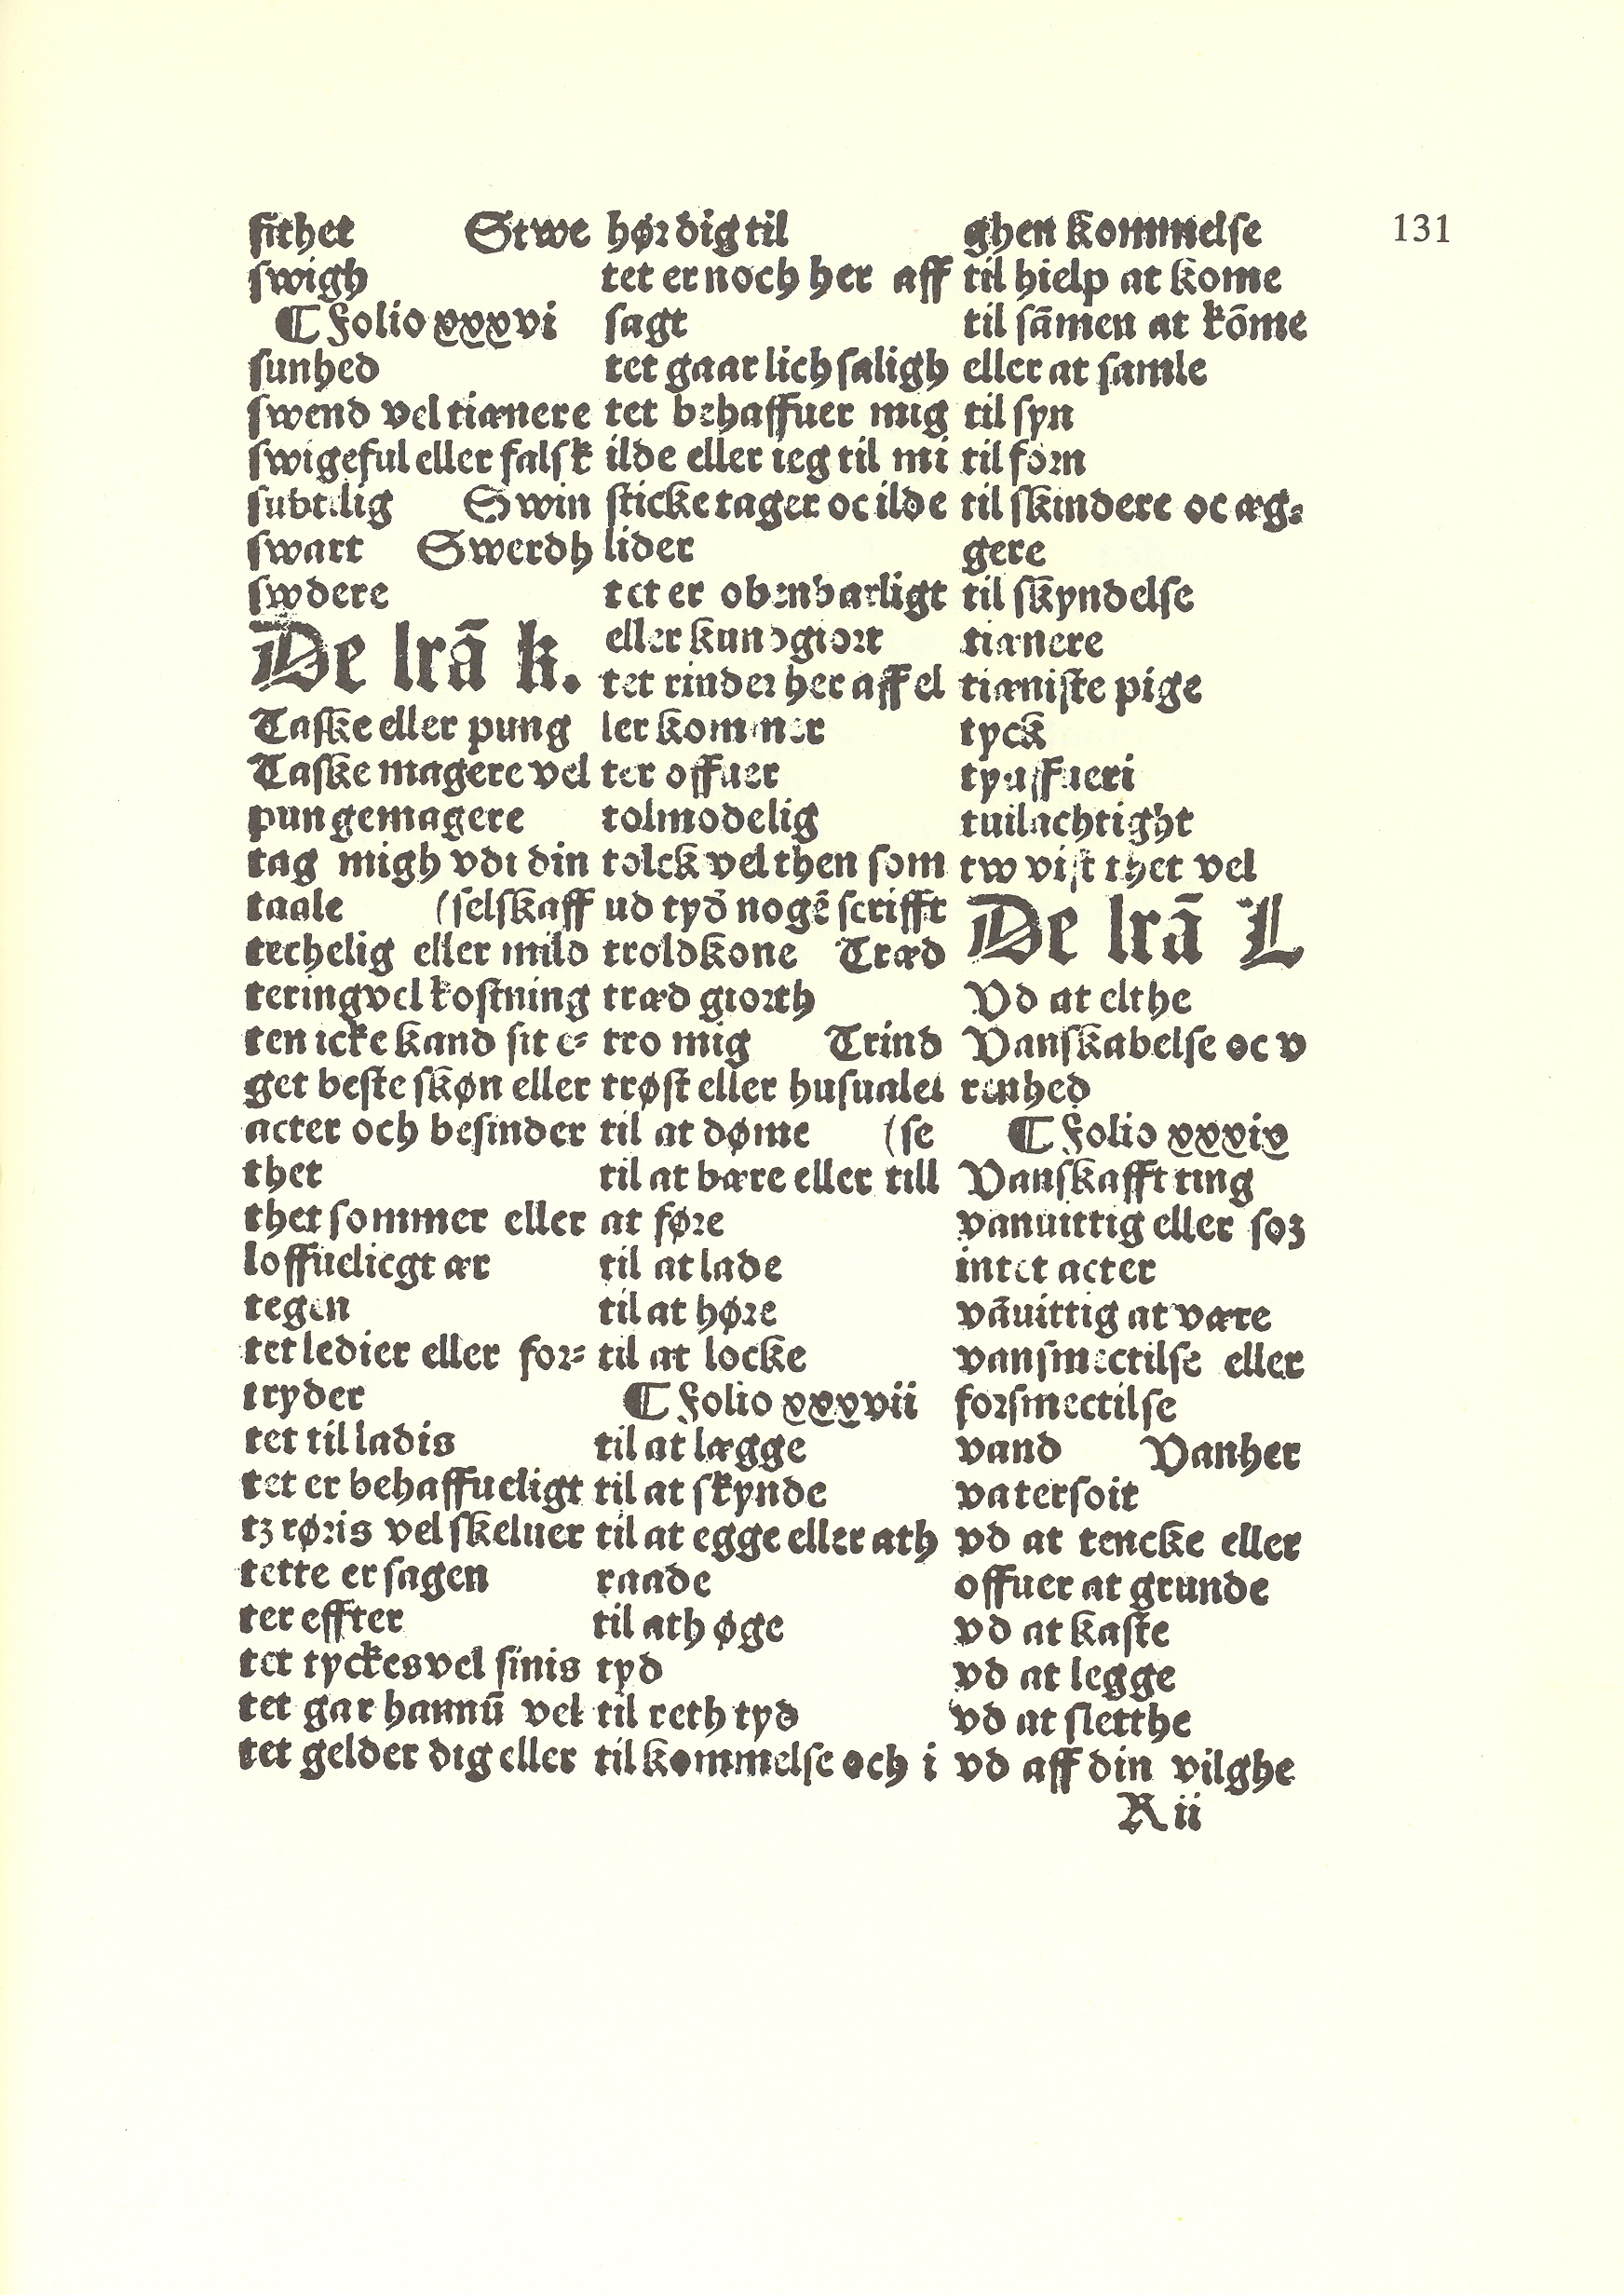 131
sithet Stwe
swigh
¶ Folio xxxvi
sunhed
swend vel tiænere
swigeful eller falsk
subtilig Swin
swart Swerdh
swdere
De lrā k.
Taske eller pung
Taske magere vel
pungemagere
tag migh vdi din
taale (selskaff
techelig eller mild
teringvel kostning
ten icke kand sit e⸗
get beste skøn eller
acter och besinder
thet
thet sommer eller
loffueliegt ær
tegen
tet ledier eller for⸗
tryder
tet til ladis
tet er behaffueligt
tʒ røris vel skeluer
tette er sagen
ter effter
tet tyckes vel sinis
tet gar hannū vel
tet gelder dig eller
hør dig til
tet er noch her aff
sagt
tet gaar lich saligh
tet behaffuer mig
ilde eller ieg til mi
sticke tager oc ilde
lider
tet er obenbarligt
eller kundgiort
tet rinder her aff el
ler kommer
ter offuer
tolmodelig
tolck vel then som
ud tyd nogē scrifft
troldkone Træd
træd giorth
tro mig Trind
trøst eller husualel
til at døme (se
til at bære eller till
at føre
til at lade
til at høre
til at locke
¶ Folio xxxvii
til at lægge
til at skynde
til at egge eller ath
raade
til ath øge
tyd
til reth tyd
til kommelse och i
ghen kommelse
til hielp at kome
til sāmen at kōme
eller at samle
til syn
til forn
til skindere oc æg⸗
gere
til skyndelse
tiænere
tiæniste pige
tyck
tyuffueri
tuilachtight
tw vist thet vel
De lrā L
Vd at elthe
Vanskabelse oc v
renhed
¶ Folio xxxix
Vanskafft ting
vanuittig eller soʒ
intet acter
vāuittig at være
vansmectilse eller
forsmectilse
vand Vanher
vatersoit
vd at tencke eller
offuer at grunde
vd at kaste
vd at legge
vd at sletthe
vd aff din vilghe
R ii